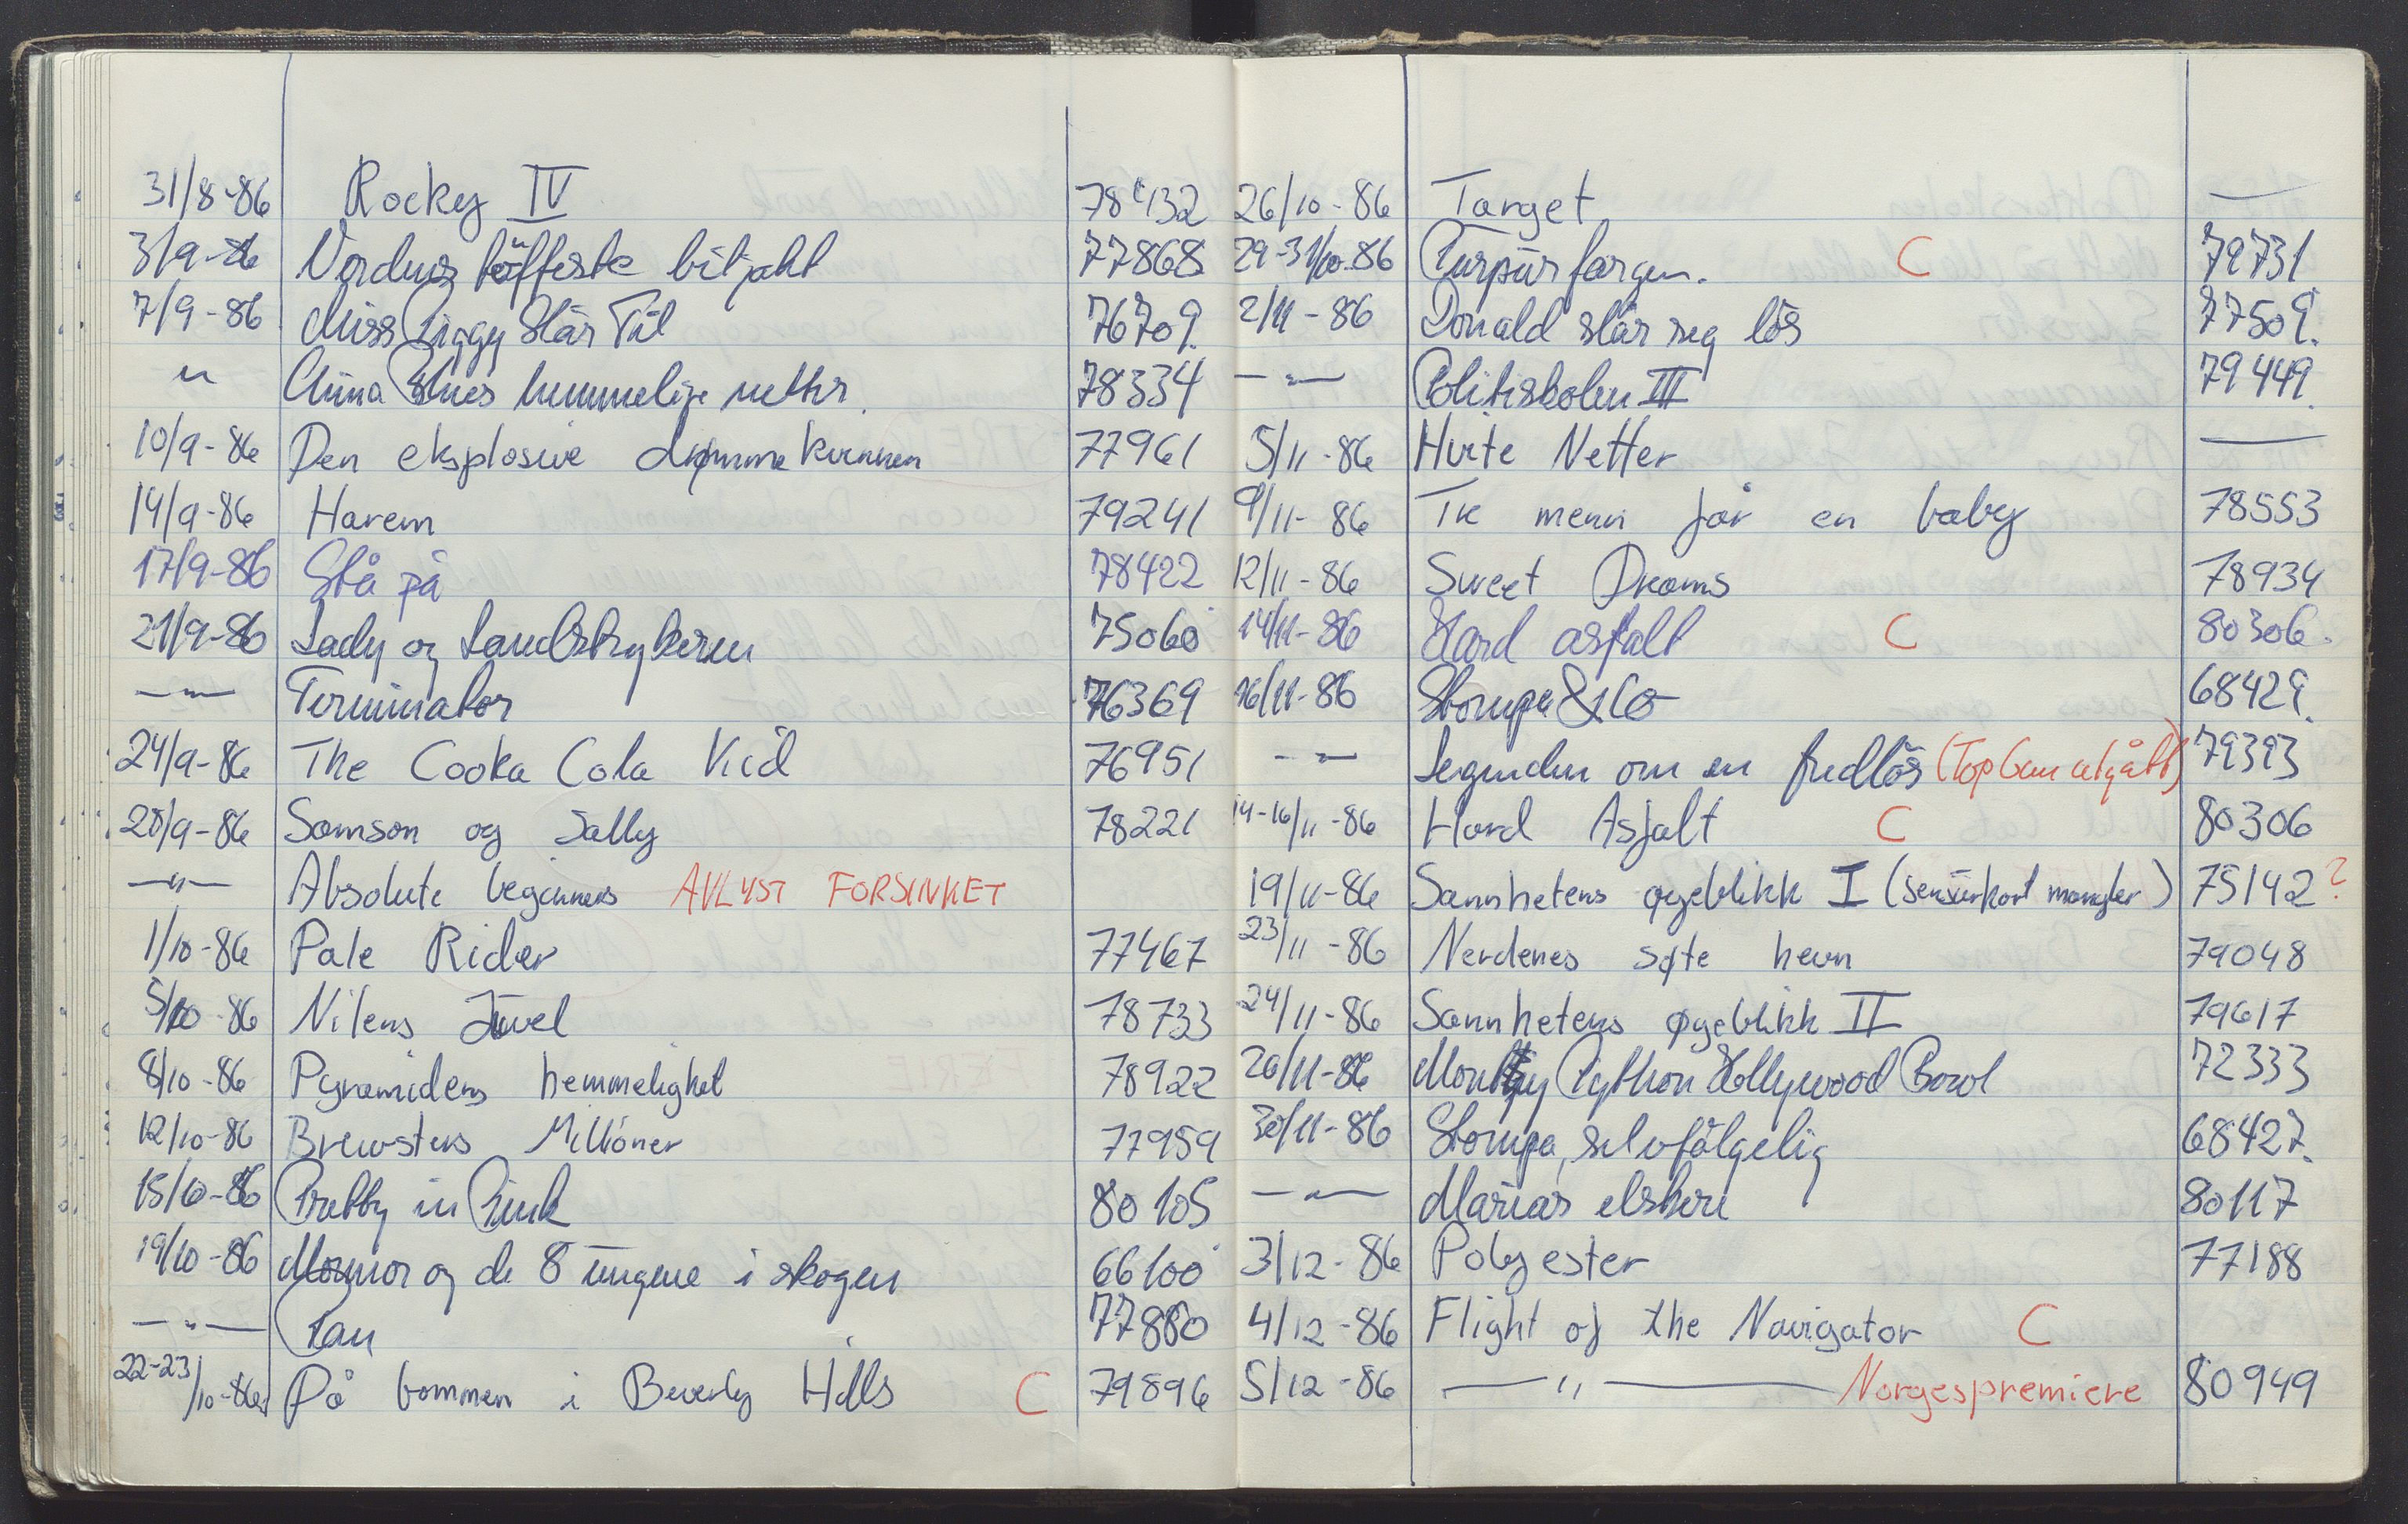 31/8-86 Rocky IV 78432
3/9-86 Nordens töffeste biljakt 77868
7/9-86 Miss Piggy Slår Til 76709.
" China Blues hemmelige netter. 78334
10/9-86 Den eksplosive drømmekvinnen 77961
14/9-86 Harem 79241
17/9-86 Stå på 78422
21/9-86 Lady og Landstrykeren 75060
—"— Terminator 76369
24/9-86 The Cooka Cola Kid 76951
28/9-86 Samson og Sally 78221
—"— Absolute beginners AVLYST FORSINKET
1/10-86 Pale Rider 77467
5/10-86 Nilens Juvel 78733
8/10-86 Pyramidens hemmelighet 78922
12/10-86 Brewsters Millioner 77959
15/10-86 Pretty in Pink 80105
19/10-86 Mormor og de 8 ungene i skogen 66100
—"— Ran 77880
22-23/10-86 På bommen i Beverly Hills C 79896
26/10-86 Target —
29-31/10-86 Purpurfargen. C 79731
2/11-86 Donald slår seg lös 77509.
—"— Politiskolen III 79449.
5/11-86 Hvite Netter —
9/11-86 Tre menn får en baby 78553
12/11-86 Sweet Dreams 78934
14/11-86 Hard asfalt C 80306.
16/11-86 Stompa & Co 68429.
—"— Legenden om en fredlös (Top Gun utgått) 79393
14-16/11-86 Hard Asfalt C 80306
19/11-86 Sannhetens øyeblikk I (sensurkort mangler) 75142?
23/11-86 Nerdenes søte hevn 79048
24/11-86 Sannhetens øyeblikk II 79617
26/11-86 Monty Python Hollywood Bowl 72333
30/11-86 Stompa, selvfölgelig 68427.
—"— Marias elskere 80117
3/12-86 Polyester 77188
4/12-86 Flight of the Navigator C
5/12-86 —"— Norgespremiere 80949